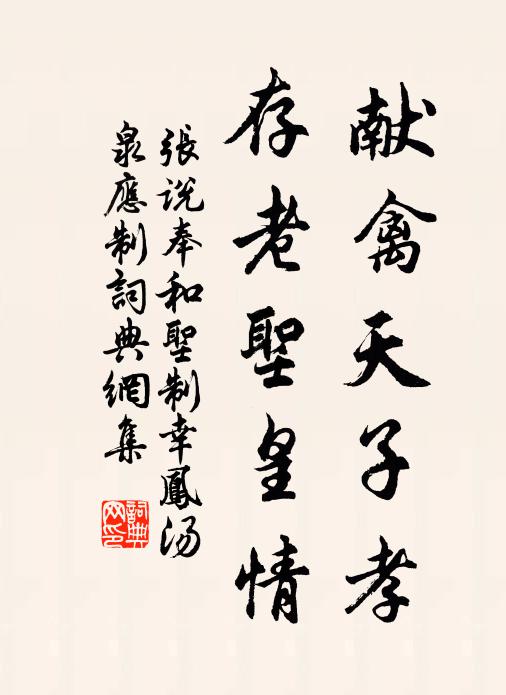 献禽天子孝
存老聖皇情
張说奉和聖制幸鳳汤
泉應制詞典網集
詞典
网印